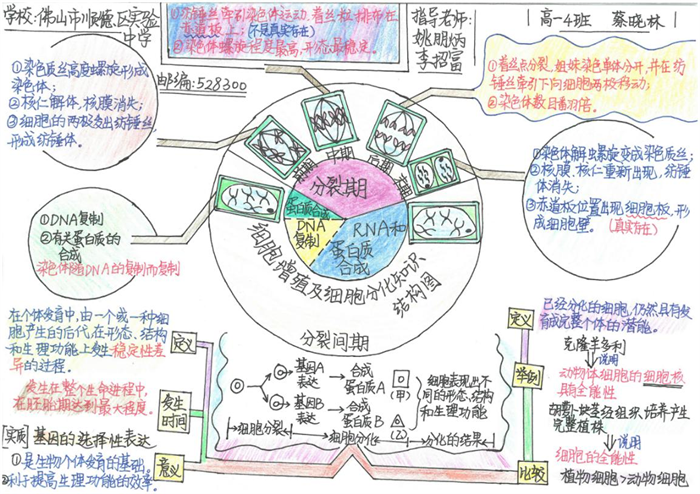 学校:佛山市顺德区实验
中学
①纺锤丝牵引染色体运动,着丝粒排布在
赤道板上;(不是真实存在)
②染色体螺旋程度最高,形态最稳定。
指导老师:
姚朋炳
李招富
高一4班 蔡晓林
邮编:528300
①染色质高度螺旋形成
染色体;
②核仁解体,核膜消失;
③细胞的两极发出纺锤丝,
形成纺锤体。
①着丝点分裂,姐妹染色单体分开,并在纺
锤丝牵引下向细胞两极移动;
②染色体数目暂加倍。
①染色体解螺旋变成染色质丝;
②核膜、核仁重新出现,纺锤
体消失;
③赤道板位置出现细胞板,形
成细胞壁。(真实存在)
①DNA复制
②有关蛋白质的
合成
染色体随DNA的复制而复制
前期
中期
后期
末期
分裂期
蛋白质合成
DNA
复制
RNA和
蛋白质
合成
细胞增殖及细胞分化知识
结构图
分裂间期
在个体发育中,由一个或一种细
胞产生的后代,在形态、结构
和生理功能上发生稳定性差
异的过程。
定义
发生在整个生命进程中,
在胚胎期达到最大程度。
发生
时间
[实质]基因的选择性表达
①是生物个体发育的基础。
②利于提高生理功能的效率。
意义
基因A
表达
合成
蛋白质A
(甲)
基因B
表达
合成
蛋白质B
(乙)
细胞表现出不
同的形态、结构
和生理功能
细胞分裂
细胞分化
分化的结果
定义
已经分化的细胞,仍然具有发
育成完整个体的潜能。
举例
克隆羊多利
说明
动物体细胞的细胞核
具全能性
胡萝卜块茎经组织培养产生
完整植株
说明
细胞的全能性
比较
植物细胞>动物细胞